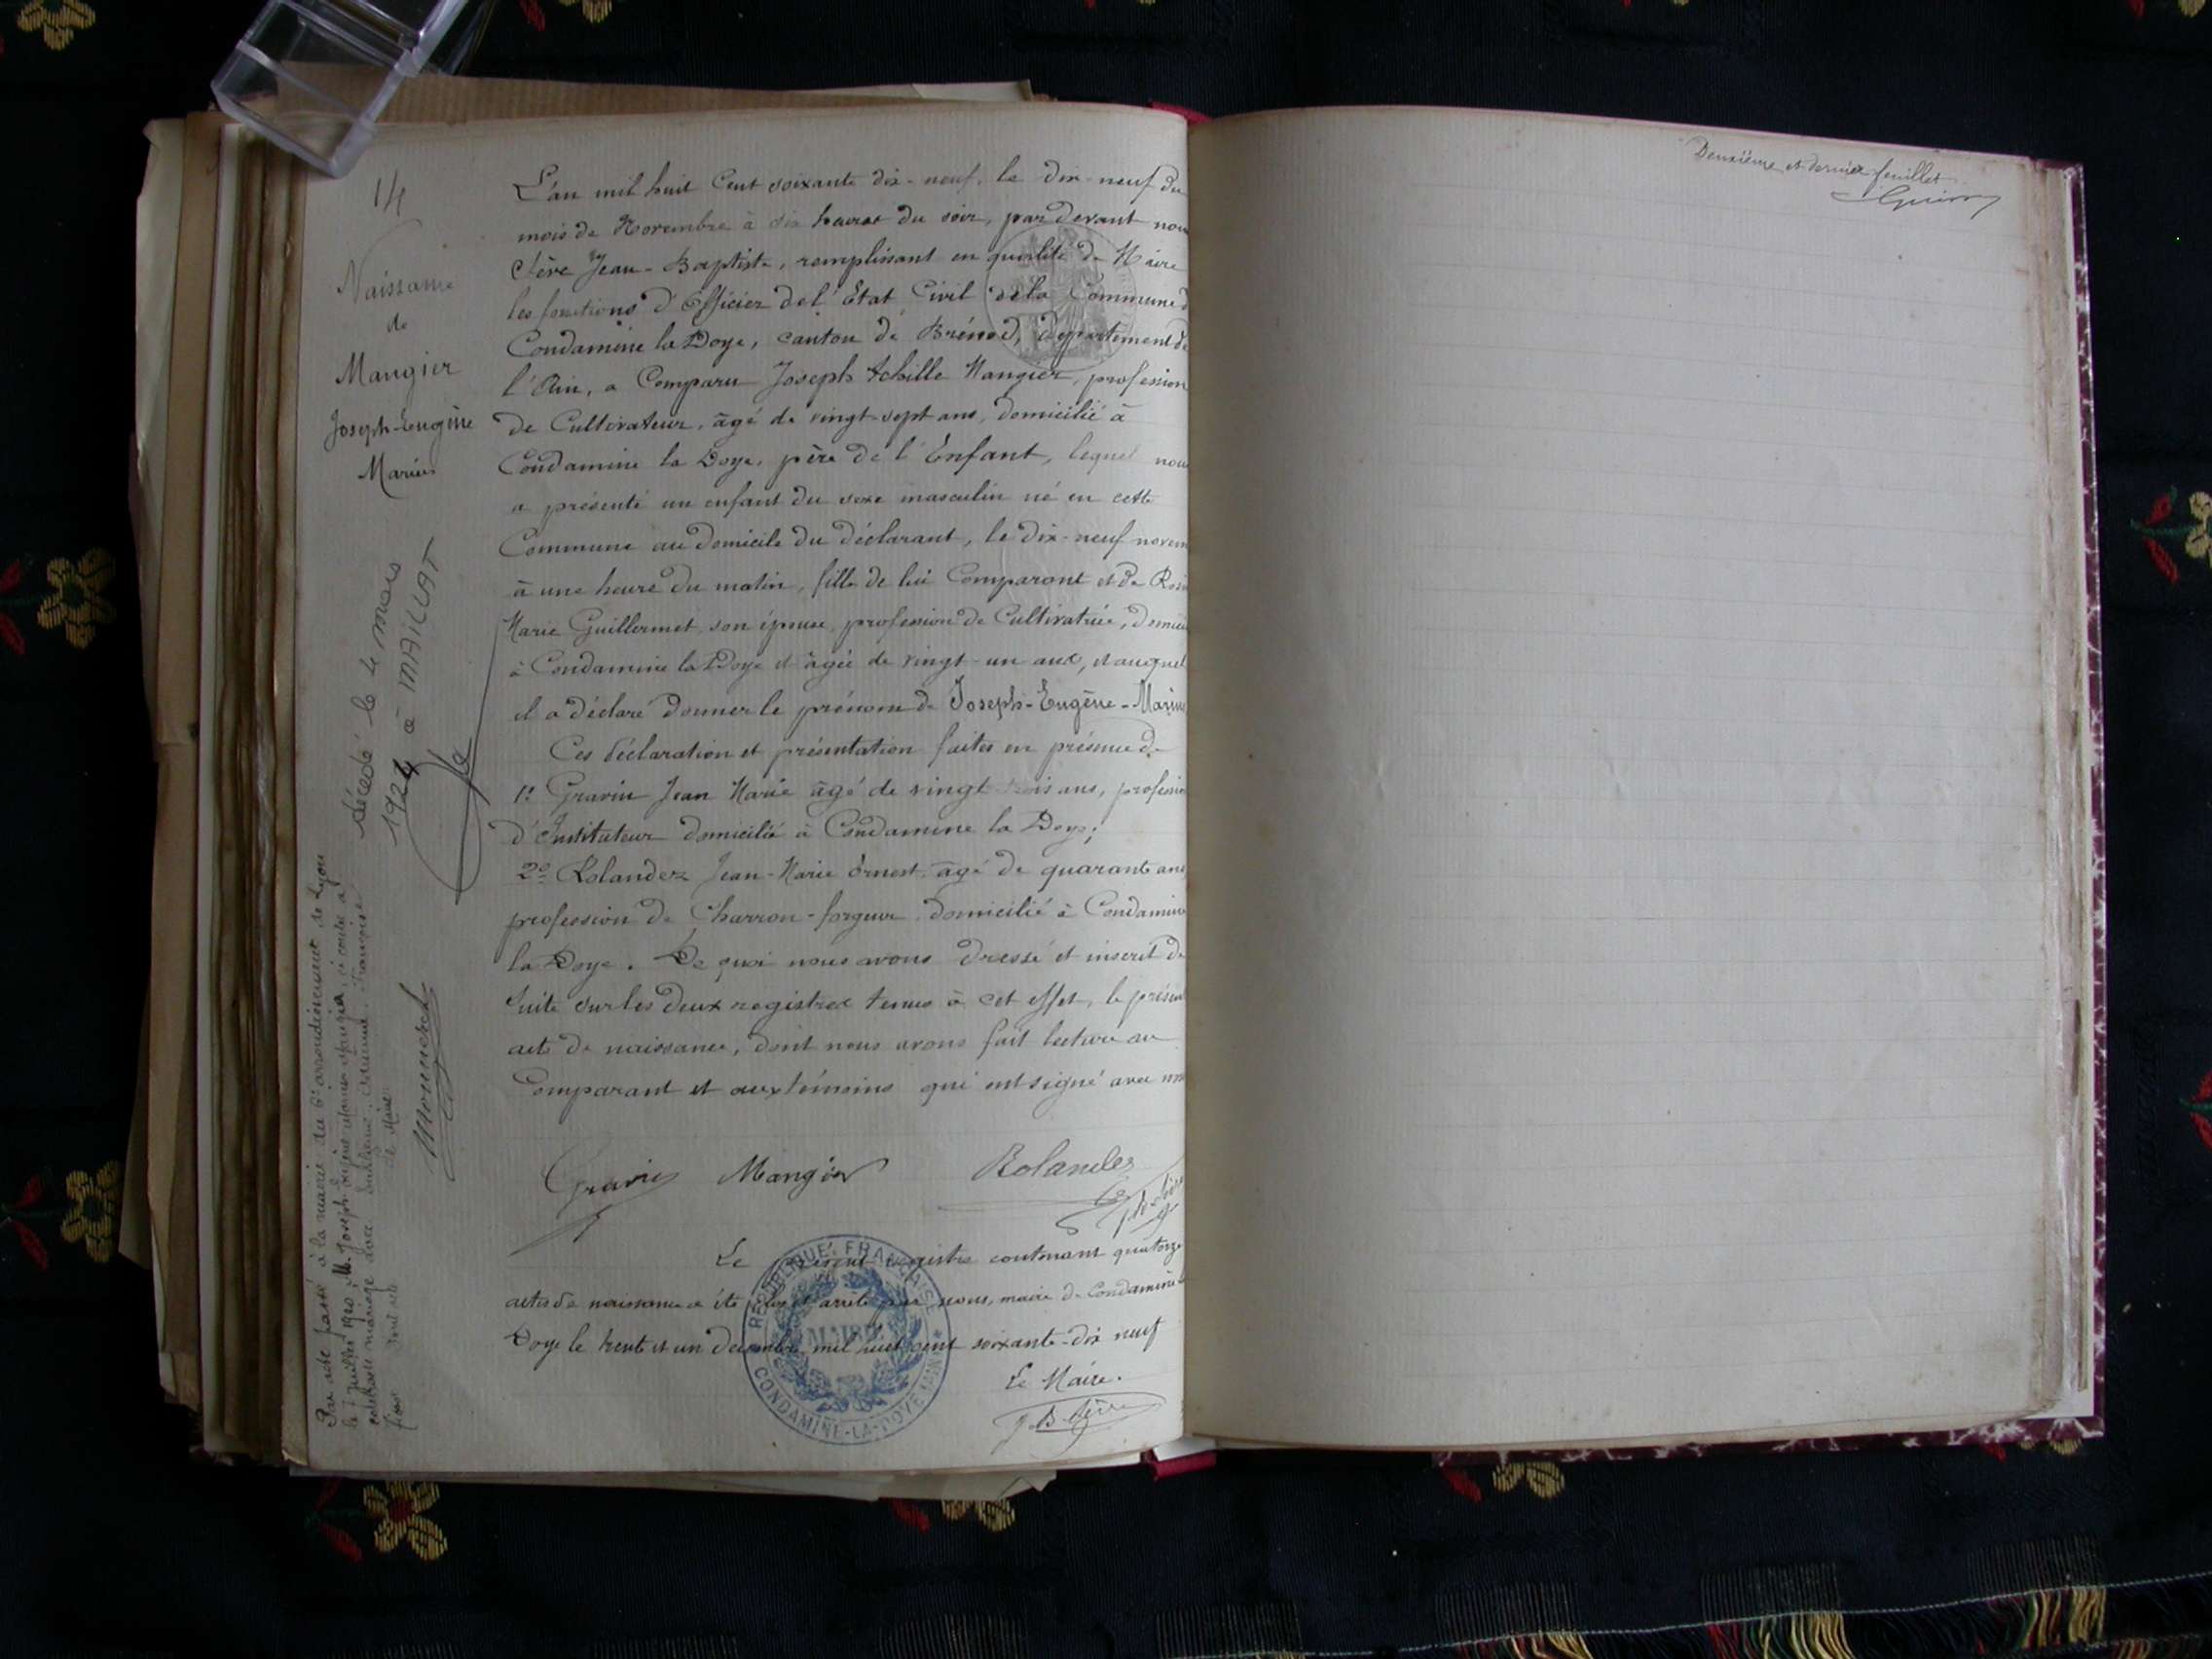 14
Naissance
de
Mangier
Joseph-Eugène
Marius
décédé le 4 mars
1924 à MAILLAT
Par acte passé à la mairie du 6e arrondissement de Lyon
le 7 juillet 1920, M. Joseph Eugène Marius Mangier, ci contre a
contracté mariage avec Françoise
Le Maire
L'an mil huit Cent soixante dix-neuf, le dix-neuf du
mois de Novembre à six heures du soir, par devant nou
Sève Jean-Baptiste, remplissant en qualité de Maire
les fonctions d'Officier de l'Etat Civil de la Commune d
Condamine la Doye, canton de Brénod, département de
l'Ain, a Comparu Joseph Achille Mangier, profession
de Cultivateur, âgé de vingt-sept ans, domicilié à
Condamine la Doye, père de l'Enfant, lequel nou
a présenté un enfant du sexe masculin né en cette
Commune au domicile du déclarant, le dix-neuf novem
à une heure du matin, fils de lui Comparant et de
Marie Guillermet son épouse, profession de Cultivatrice,
à Condamine la Doye et âgée de vingt-un ans, et auquel
il a déclaré donner le prénom de Joseph-Eugène-Marius
Ces déclaration et présentation faites en présence de
1º Gravin Jean Marie âgé de vingt trois ans, profession
d'Instituteur domicilié à Condamine la Doye;
2º Rolandez Jean-Marie Ernest, âgé de quarante ans
profession de Charron-forgeur domicilié à Condamine
la Doye. De quoi nous avons dressé et inscrit de
suite sur les deux registres tenus à cet effet, le présent
acte de naissance, dont nous avons fait lecture au
Comparant et aux témoins qui ont signé avec nous
Gravin Mangier Rolandez
Le présent registre contenant quatorze
actes de naissance a été clos et arrêté par nous, maire de Condamine la
Doye le trente et un décembre mil huit cent soixante-dix neuf
Le Maire.
J-B Sève
RÉPUBLIQUE FRANÇAISE
MAIRIE
CONDAMINE-LA-DOYE (AIN)
Deuxième et dernier feuillet